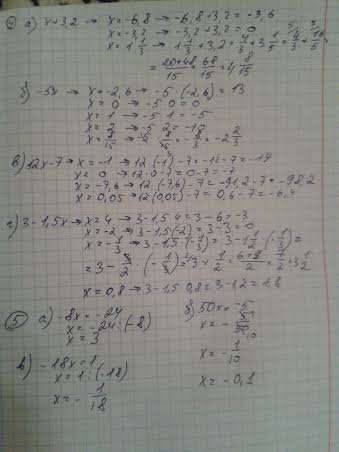 ④ а) x+3,2 → x=-6,8 → -6,8+3,2 = -3,6
x=-3,2 → -3,2+3,2 = 0
x=1 1/3 → 1 1/3 + 3,2 = 4/3 + 3 1/5 = 4/3 + 16/5 =
= (20+48)/15 = 68/15 = 4 8/15
б) -5x → x=-2,6 → -5·(-2,6) = 13
x=0 → -5·0 = 0
x=1 → -5·1 = -5
= -8/3 = -2 2/3
в) 12x-7 → x=-1 → 12·(-1)-7 = -12-7 = -19
x=0 → 12·0-7 = 0-7 = -7
x=-7,6 → 12·(-7,6)-7 = -91,2-7 = -98,2
x=0,05 → 12·(0,05)-7 = 0,6-7 = -6,4
г) 3-1,5x → x=4 → 3-1,5·4 = 3-6 = -3
x=-2 → 3-1,5·(-2) = 3-3 = 0
x=-1/3 → 3-1,5·(-1/3) = 3-1 1/2·(-1/3) =
= 3 - 3/2·(-1/3) = 3+1/2 = = 3 1/2
x=0,8 → 3-1,5·0,8 = 3-1,2 = 1,8
⑤ а) -8x=-24
x=-24:(-8)
x=3
б) 50x=-5
x=-5/50
x=-1/10
x=-0,1
в) -18x=1
x=1:(-18)
x=-1/18